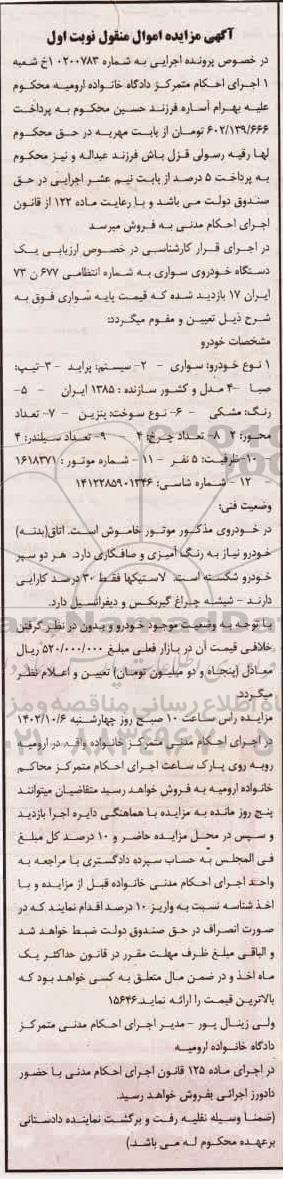 آگهی مزایده اموال منقول نوبت اول
در خصوص پرونده اجرایی به شماره ۰۲۰۰۷۸۳ اخ شعبه
۱ اجرای احکام متمرکز دادگاه خانواده ارومیه محکوم
علیه بهرام آساره فرزند حسین محکوم به پرداخت
۶۰۲/۱۳۹/۶۶۶ تومان از بابت مهریه در حق محکوم
لها رقیه رسولی قزل باش فرزند عبداله و نیز محکوم
به پرداخت ۵ درصد از بابت نیم عشر اجرایی در حق
صندوق دولت می باشد و با رعایت ماده ۱۲۲ از قانون
اجرای احکام مدنی به فروش میرسد
در اجرای قرار کارشناسی در خصوص ارزیابی یک
دستگاه خودروی سواری به شماره انتظامی ۶۷۷ن ۷۳
ایران ۱۷ بازدید شده که قیمت پایه سواری فوق به
شرح ذیل تعیین و مقوم میگردد:
مشخصات خودرو
۱ نوع خودرو: سواری - ۲- سیستم: پراید -۳-تیپ:
صبا -۴ مدل و کشور سازنده : ۱۳۸۵ ایران - ۵-
رنگ: مشکی - ۶- نوع سوخت: بنزین - ۷- تعداد
محور: ۲ ۸- تعداد چرخ: ۴ - ۹- تعداد سیلندر: ۴
- ۱۰- ظرفیت: ۵ نفر - ۱۱ - شماره موتور : ۱۶۱۸۳۷۱
۱۲ - شماره شاسی: ۱۴۱۲۲۸۵۹۰۱۳۴۶
وضعیت فنی:
در خودروی مذکور موتور خاموش است. اتاق(بدنه)
خودرو نیاز به رنگ آمیزی و صافکاری دارد. هر دو سپر
خودرو شکسته است. لاستیکها فقط ۳۰ درصد کارایی
دارند - شیشه چراغ گیربکس و دیفرانسیل دارد.
با توجه به وضعیت موجود خودرو و بدون در نظر گرفتن
خلافی قیمت آن در بازار فعلی مبلغ ۵۲۰/۰۰۰/۰۰۰ ریال
معادل (پنجاه و دو میلیون تومان) تعیین و اعلام نظر
میگردد.
مزایده راس ساعت ۱۰ صبح روز چهارشنبه ۱۴۰۲/۱۰/۶
در اجرای احکام مدنی متمرکز خانواده واقع در ارومیه
روبه روی پارک ساعت اجرای احکام متمرکز محاکم
خانواده ارومیه به فروش خواهد رسید متقاضیان میتوانند
پنج روز مانده به مزایده با هماهنگی دایره اجرا بازدید
و سپس در محل مزایده حاضر و ۱۰ درصد کل مبلغ
فی المجلس به حساب سپرده دادگستری با مراجعه به
واحد اجرای احکام مدنی خانواده قبل از مزایده و با
اخذ شناسه نسبت به واریز ۱۰ درصد اقدام نمایند که در
صورت انصراف در حق صندوق دولت ضبط خواهد شد
و الباقی مبلغ ظرف مهلت مقرر در قانون حداکثر یک
ماه اخذ و در ضمن مال متعلق به کسی خواهد بود که
بالاترین قیمت را ارائه نماید.۱۵۶۴۶
ولی زینال پور - مدیر اجرای احکام مدنی متمرکز
دادگاه خانواده ارومیه
در اجرای ماده ۱۲۵ قانون اجرای احکام مدنی با حضور
دادورز اجرائی بفروش خواهد رسید.
(ضمنا وسیله نقلیه رفت و برگشت نماینده دادستانی
برعهده محکوم له می باشد.)